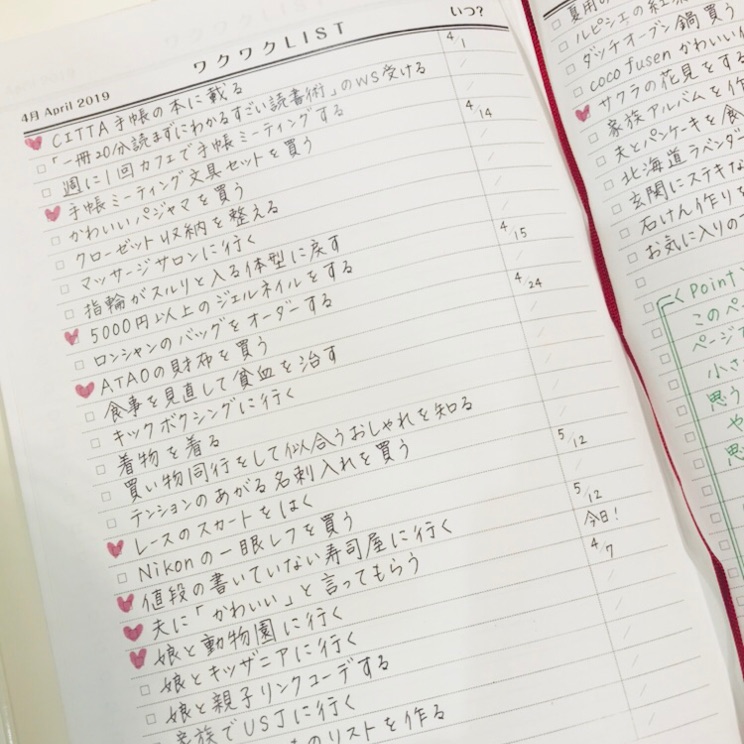 ワクワクLIST
いつ?
4月 April 2019
CITTA手帳の本に載る 4/1
「一冊20分読まずにわかるすごい読書術」のWS受ける
週に1回カフェで手帳ミーティングする
手帳ミーティング文具セットを買う 4/14
かわいいパジャマを買う
クローゼット収納を整える
マッサージサロンに行く
指輪がスルリと入る体型に戻す
5000円以上のジェルネイルをする 4/15
ロンシャンのバッグをオーダーする
ATAOの財布を買う 4/24
食事を見直して貧血を治す
キックボクシングに行く
着物を着る
買い物同行をして似合うおしゃれを知る
テンションのあがる名刺入れを買う
レースのスカートをはく 5/12
Nikonの一眼レフを買う
値段の書いていない寿司屋に行く 5/12
夫に「かわいい」と言ってもらう 今日!
娘と動物園に行く 4/7
娘とキッザニアに行く
娘と親子リンクコーデする
家族でUSJに行く
のリストを作る
夏用の
ルピシェの紅茶
ダッチオーブン鍋買う
coco fusen かわいい
サクラの花見をする
家族アルバムを作
夫とパンケーキを食
北海道ラベンダ
玄関にステキな
石けん作りを
お気に入りの
Point
このペ
ページ
小さ
思う
や
思